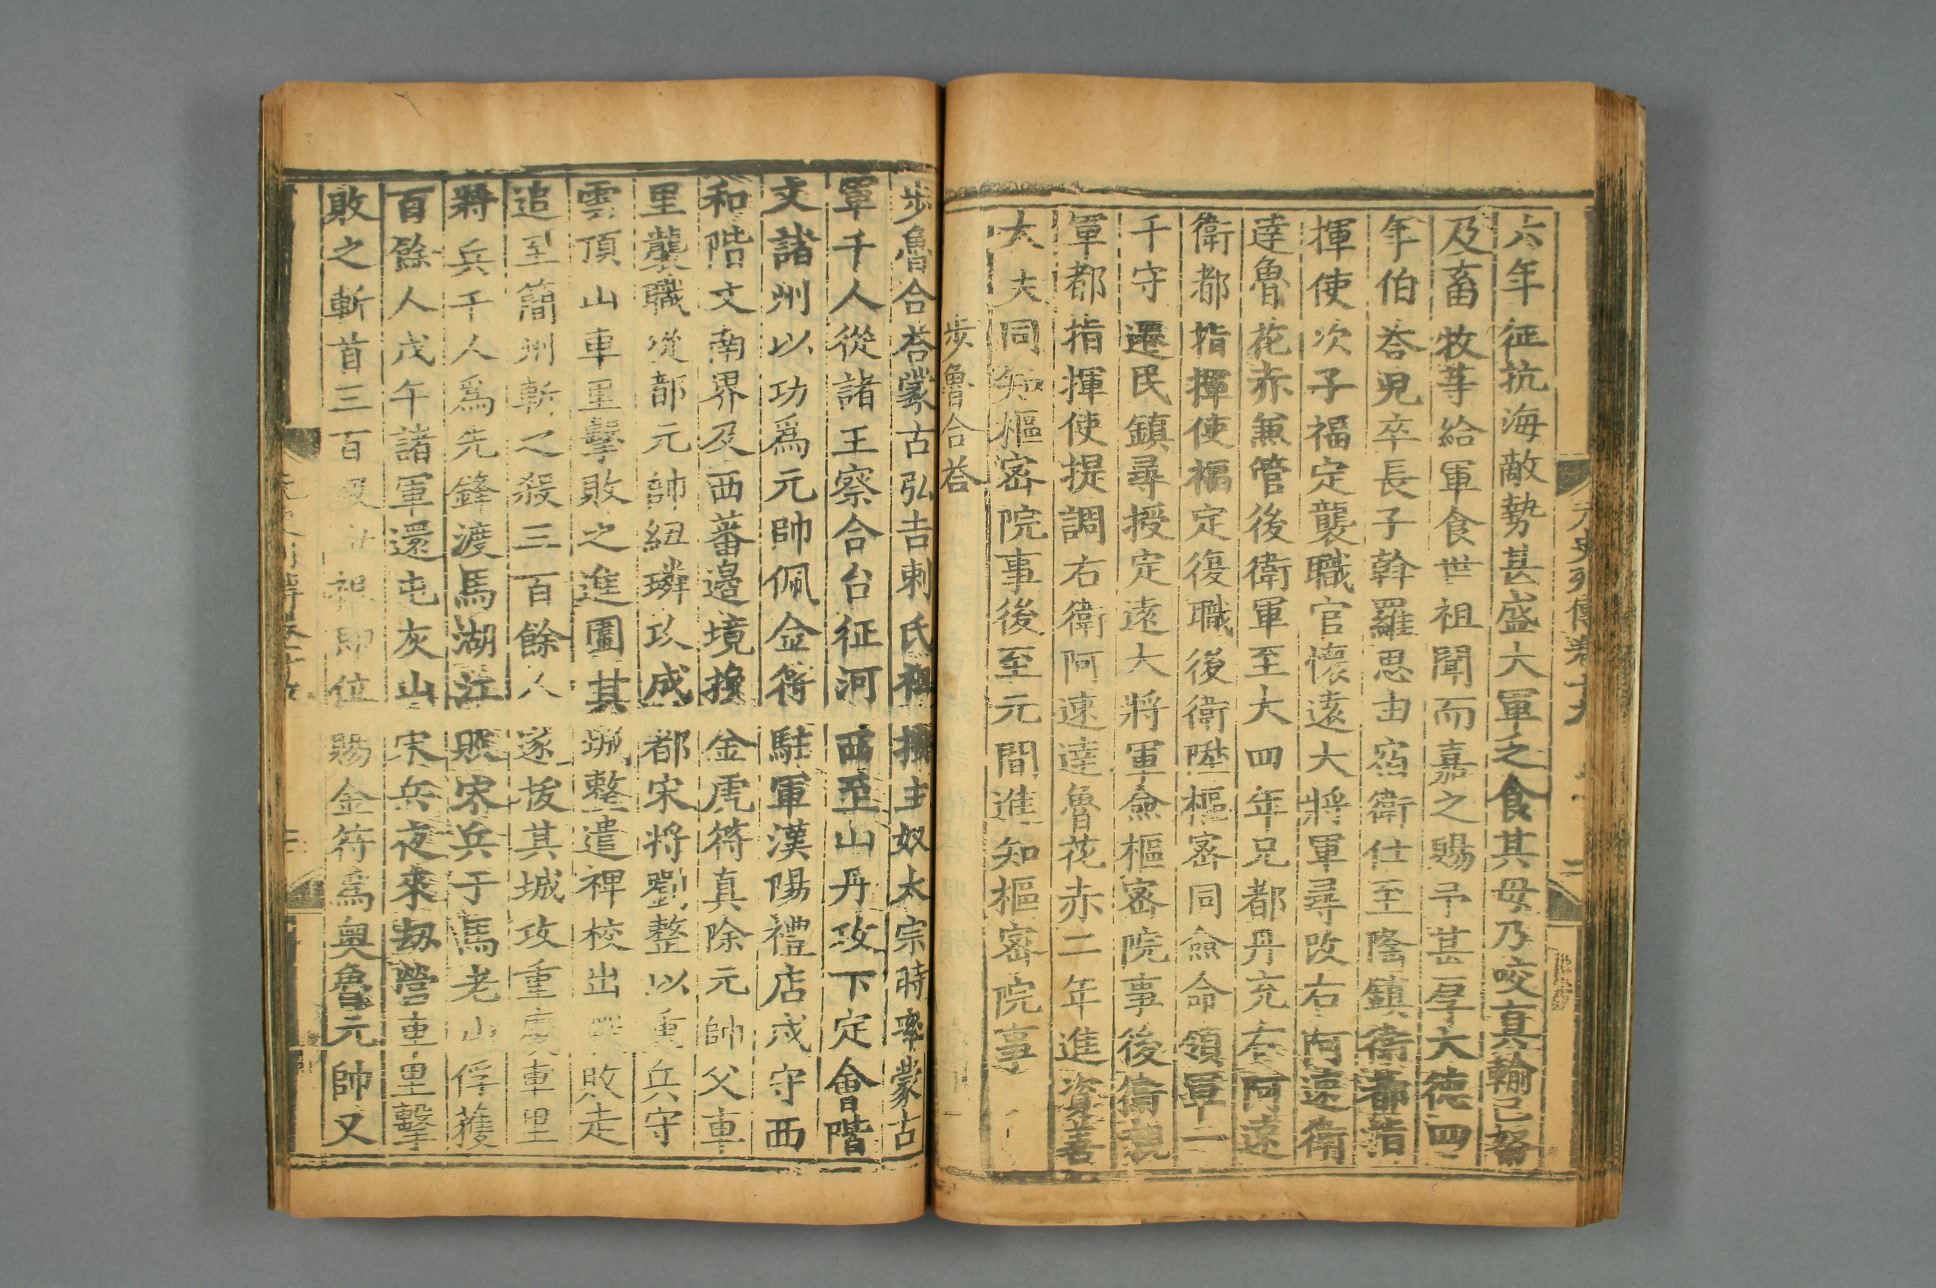 六年征抗海敵勢甚盛大軍乏食其母乃咬真輸己帑
及畜牧等給軍食世祖聞而嘉之賜予甚厚大德四
年伯荅兒卒長子斡羅思由宿衛仕至隆鎮衛都指
揮使次子福定襲職官懷遠大將軍尋改右阿速衛
達魯花赤兼管後衛軍至大四年兄都丹充右阿速
衛都指揮使福定復職後衛陞樞密同僉命領軍一
千守遷民鎮尋授定遠大將軍僉樞密院事後衛親
軍都指揮使提調右衛阿速達魯花赤二年進資善
大夫同知樞密院事後至元間進知樞密院事
步魯合荅
步魯合荅蒙古弘吉剌氏祖按主奴太宗時率蒙古
軍千人從諸王察合台征河西至山丹攻下定會階
文諸州以功爲元帥佩金符駐軍漢陽禮店戍守西
和階文南界及西蕃邊境換金虎符真除元帥父車
里襲職從都元帥紐璘攻成都宋將劉整以重兵守
雲頂山車里擊敗之進圍其城整遣裨校出戰敗走
追至簡州斬之殺三百餘人遂拔其城攻重慶車里
將兵千人爲先鋒渡馬湖江 宋兵于馬老山俘獲
百餘人戊午諸軍還屯灰山宋兵夜來劫營車里擊
敗之斬首三百 世祖即位賜金符爲奥魯元帥又
元史列傳卷十九